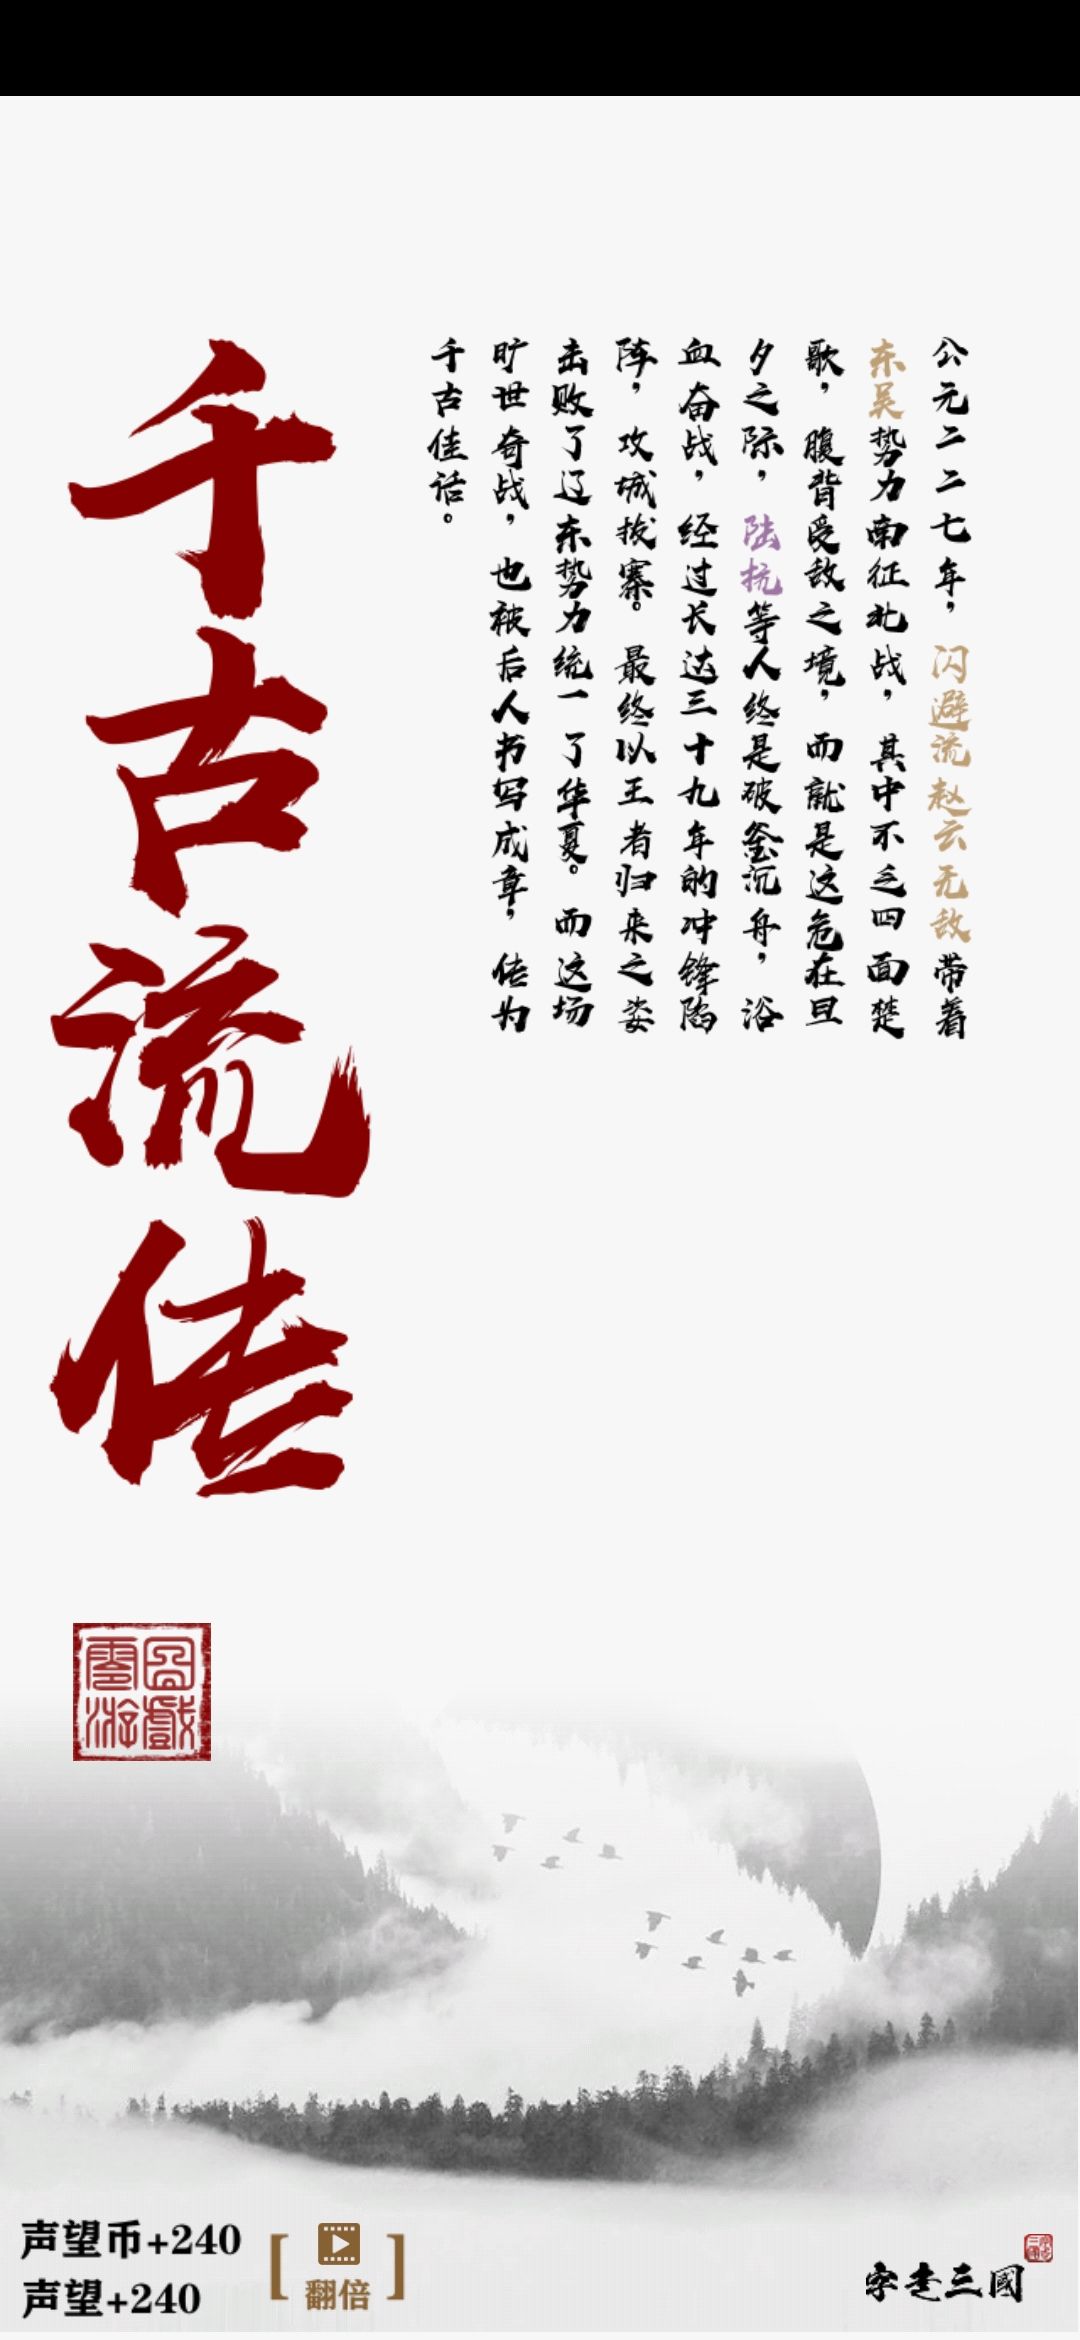 公元二二七年，闪避流赵云无敌带着
东吴势力南征北战，其中不乏四面楚
歌，腹背受敌之境，而就是这危在旦
夕之际，陆抗等人终是破釜沉舟，浴
血奋战，经过长达三十九年的冲锋陷
阵，攻城拔寨。最终以王者归来之姿
击败了辽东势力统一了华夏。而这场
旷世奇战，也被后人书写成章，传为
千古佳话。
千古流传
声望币+240
声望+240
[翻倍]
字走三國